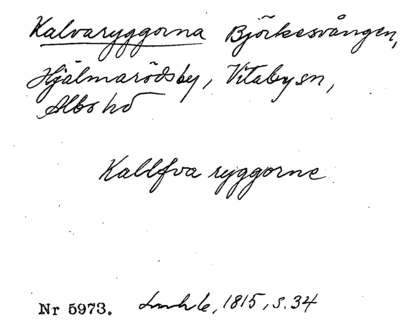 Kalvaryggorna Björkesvången,
Hjälmarödsby, Vitabysn,
Albo hd
Kallfva ryggorne
Nr 5973. 1815, s. 34